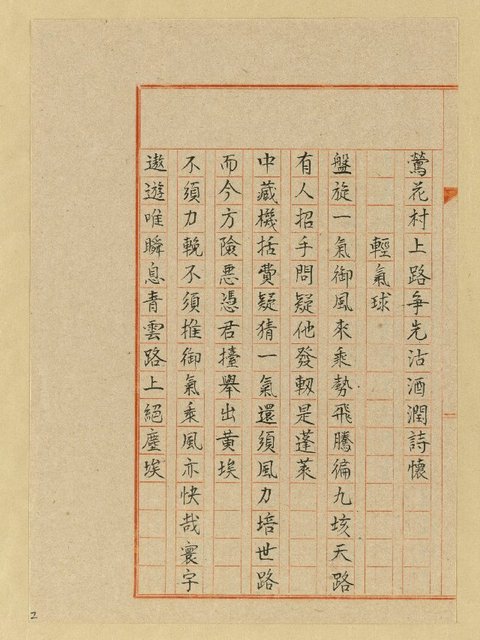 鶯花村上路爭先沽酒潤詩懷
輕氣球
盤旋一氣御風來乘勢飛騰徧九垓天路
有人招手問疑他發軔是蓬萊
中藏機括費疑猜一氣還須風力培世路
而今方險惡憑君擡舉出黃埃
不須力輓不須推御氣乘風亦快哉寰宇
遨遊唯瞬息青雲路上絕塵埃
2